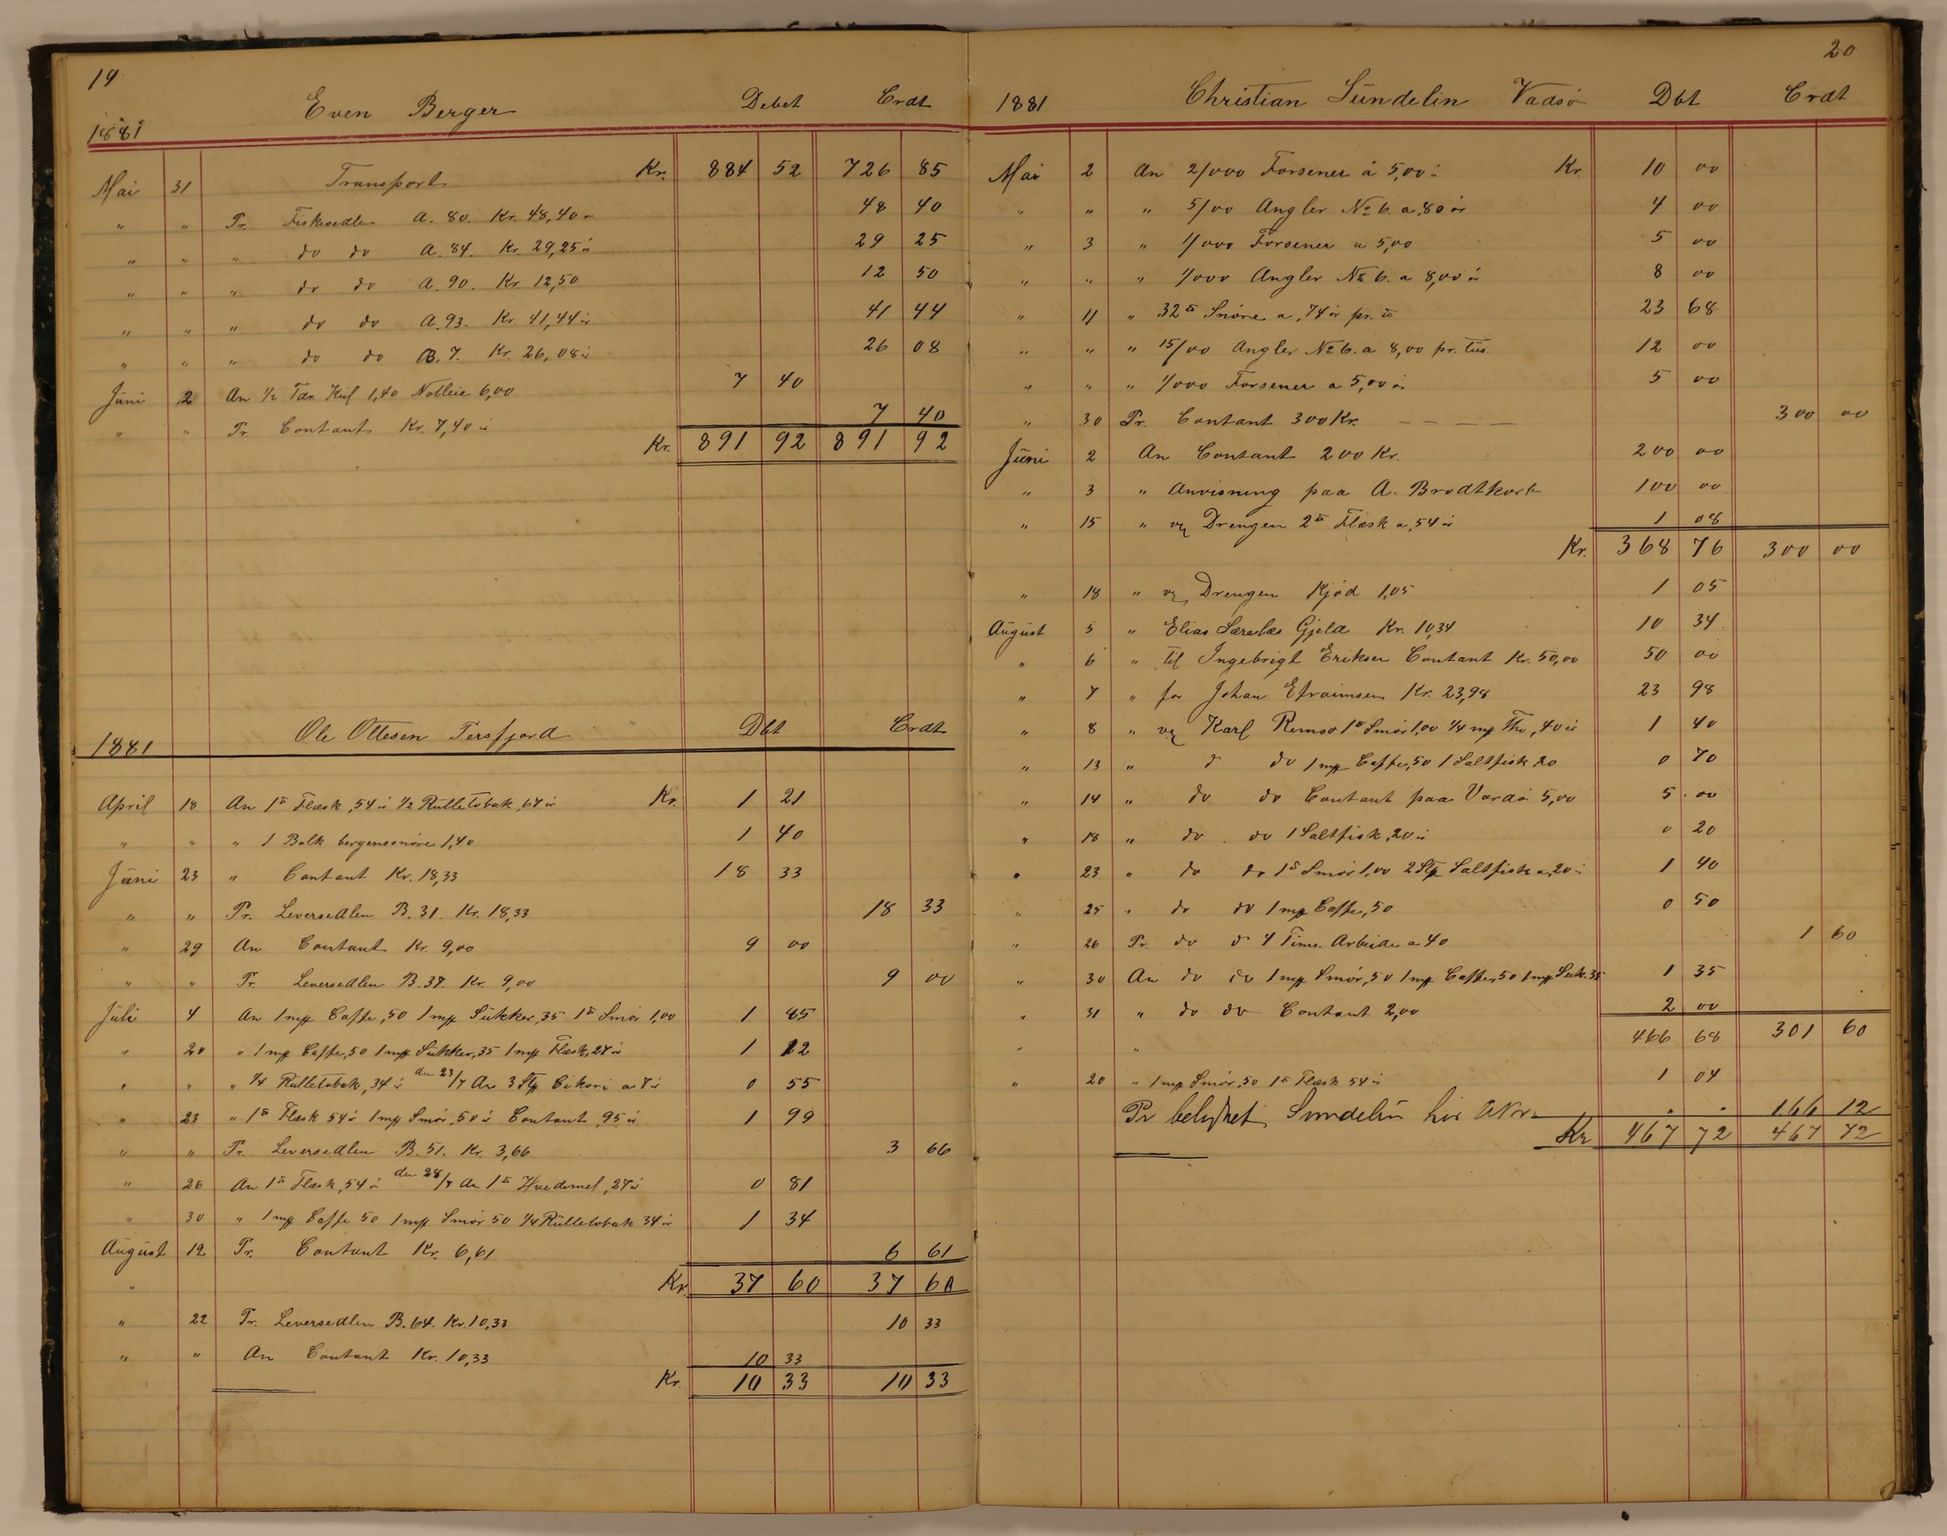 19
Even Berger Debet Crdt
1881
Mai 31 Transport Kr. 884 52 726 85
" " Pr. Fiskesedlen A. 80. Kr. 48,40 48 40
" " " do do A. 84. Kr. 29,25 ö 29 25
" " " do do A. 90. Kr. 12,50 12 50
" " " do do A. 93. Kr. 41,44 ö 41 44
" " " do do B. 7. Kr. 26,08 ö 26 08
Juni 2 An 1/2 Tdr. Kul 1,40 Notleie 6,00 7 40
" " Pr. Contant Kr. 7,40 ö 7 40
Kr. 891 92 891 92
1881 Ole Ottesen Persfjord Dbt Crdt
April 18 An 1 ℔ Flæsk ,54 ö 1/2 Rulletobak ,67 ö Kr. 1 21
" " " 1 Bolk bergensnöre 1,40 1 40
Juni 23 " Contant Kr. 18,33 18 33
" " Pr. Leversedlen B. 31. Kr. 18,33 18 33
" 29 An Contant Kr. 9,00 9 00
" " Pr. Leversedlen B. 37. Kr. 9,00 9 00
Juli 4 An 1 mk Caffe ,50 1 mk Sukker ,35 1 ℔ Smör 1,00 1 85
" 20 " 1 mk Caffe ,50 1 mk Sukker ,35 1 mk Flæsk ,27 ö 1 12
" " " 1/4 Rulletobak ,34 ö den 23/7 An 3 Stk Cikori a 7 ö 0 55
" 23 " 1 ℔ Flæsk 54 ö 1 mk Smör ,50 ö Contant ,95 ö 1 99
" " Pr. Leversedlen B. 51. Kr. 3,66 3 66
" 26 An 1 ℔ Flæsk ,54 ö den 28/7 An 1 ℔ Hvedemel ,27 ö 0 81
" 30 " 1 mk Caffe 50 1 mk Smör 50 1/4 Rulletobak 34 ö 1 34
August 12 Pr. Contant Kr. 6,61 6 61
" Kr. 37 60 37 60
" 22 Pr. Leversedlen B. 64. Kr. 10,33 10 33
" " An Contant Kr. 10,33 10 33
Kr. 10 33 10 33
20
1881 Christian Sundelin Vadsö Dbt Crdt
Mai 2 An 2/000 Forsener á 5,00 ö Kr. 10 00
" " " 5/00 Angler No 6. a ,80 ör 4 00
" 3 " 1/000 Forsener a 5,00 5 00
" " " 1/000 Angler No 6. a 8,00 ö 8 00
" 11 " 32 ℔ Snöre a ,74 ör pr. ℔ 23 68
" " " 15/00 Angler No 6. a 8,00 pr. tus. 12 00
" " " 1/000 Forsener a 5,00 ö 5 00
" 30 Pr. Contant 300 Kr. 300 00
Juni 2 An Contant 200 Kr. 200 00
" 3 " Anvisning paa A. Brodtkorb 100 00
" 15 " v Drengen 2 ℔ Flæsk a ,54 ö 1 08
Kr. 368 76 300 00
" 18 " v Drengen Kjöd 1,05 1 05
August 5 " Elias Gjeld Kr. 10,34 10 34
" 6 " til Ingebrigt Eriksen Contant Kr. 50,00 50 00
" 7 " for Johan Efraimsen Kr. 23,98 23 98
" 8 " v Karl 1 ℔ Smör 1,00 1/4 mk The ,40 ö 1 40
" 13 " d do 1 mk Caffe ,50 1 Saltfisk 20 0 70
" 14 " do do Contant paa Vardö 5,00 5 00
" 18 " do do 1 Saltfisk ,20 ö 0 20
" 23 " do do 1 ℔ Smör 1,00 2 Stk Saltfisk a ,20 ö 1 40
" 25 " do do 1 mk Caffe ,50 0 50
" 26 Pr. do d 4 Tims. Arbeide a 40 1 60
" 30 An do do 1 mk Smör ,50 1 mk Caffe ,50 1 mk Suk. 35 1 35
" 31 " do do Contant 2,00 2 00
" " 466 68 301 60
" 20 " 1 mk Smör ,50 1 ℔ Flæsk 54 ö 1 04
Pr Sundelin 166 12
Kr 467 72 467 72